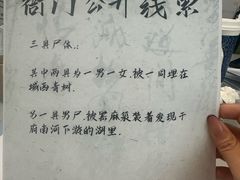 衙门公开线索
三具尸体.:
其中两具为一男一女,被一同埋在
城西青树.
另一具男尸,被罢麻袋装着发现于
府南河下游的湖里.